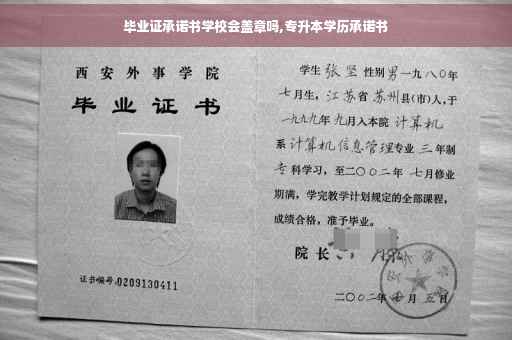 毕业证承诺书学校会盖章吗,专升本学历承诺书
西安外事学院
毕业证书
证书编号:0209130411
学生 张坚 性别 男 一九八〇年
七月生, 江苏省 苏州县(市)人,于
一九九九年 九月入本院 计算机
系 计算机信息管理专业 三 年制
专 科学习,至二〇〇二年 七月修业
期满,学完教学计划规定的全部课程,
成绩合格,准予毕业。
院长
二〇〇二年 七 月 五 日